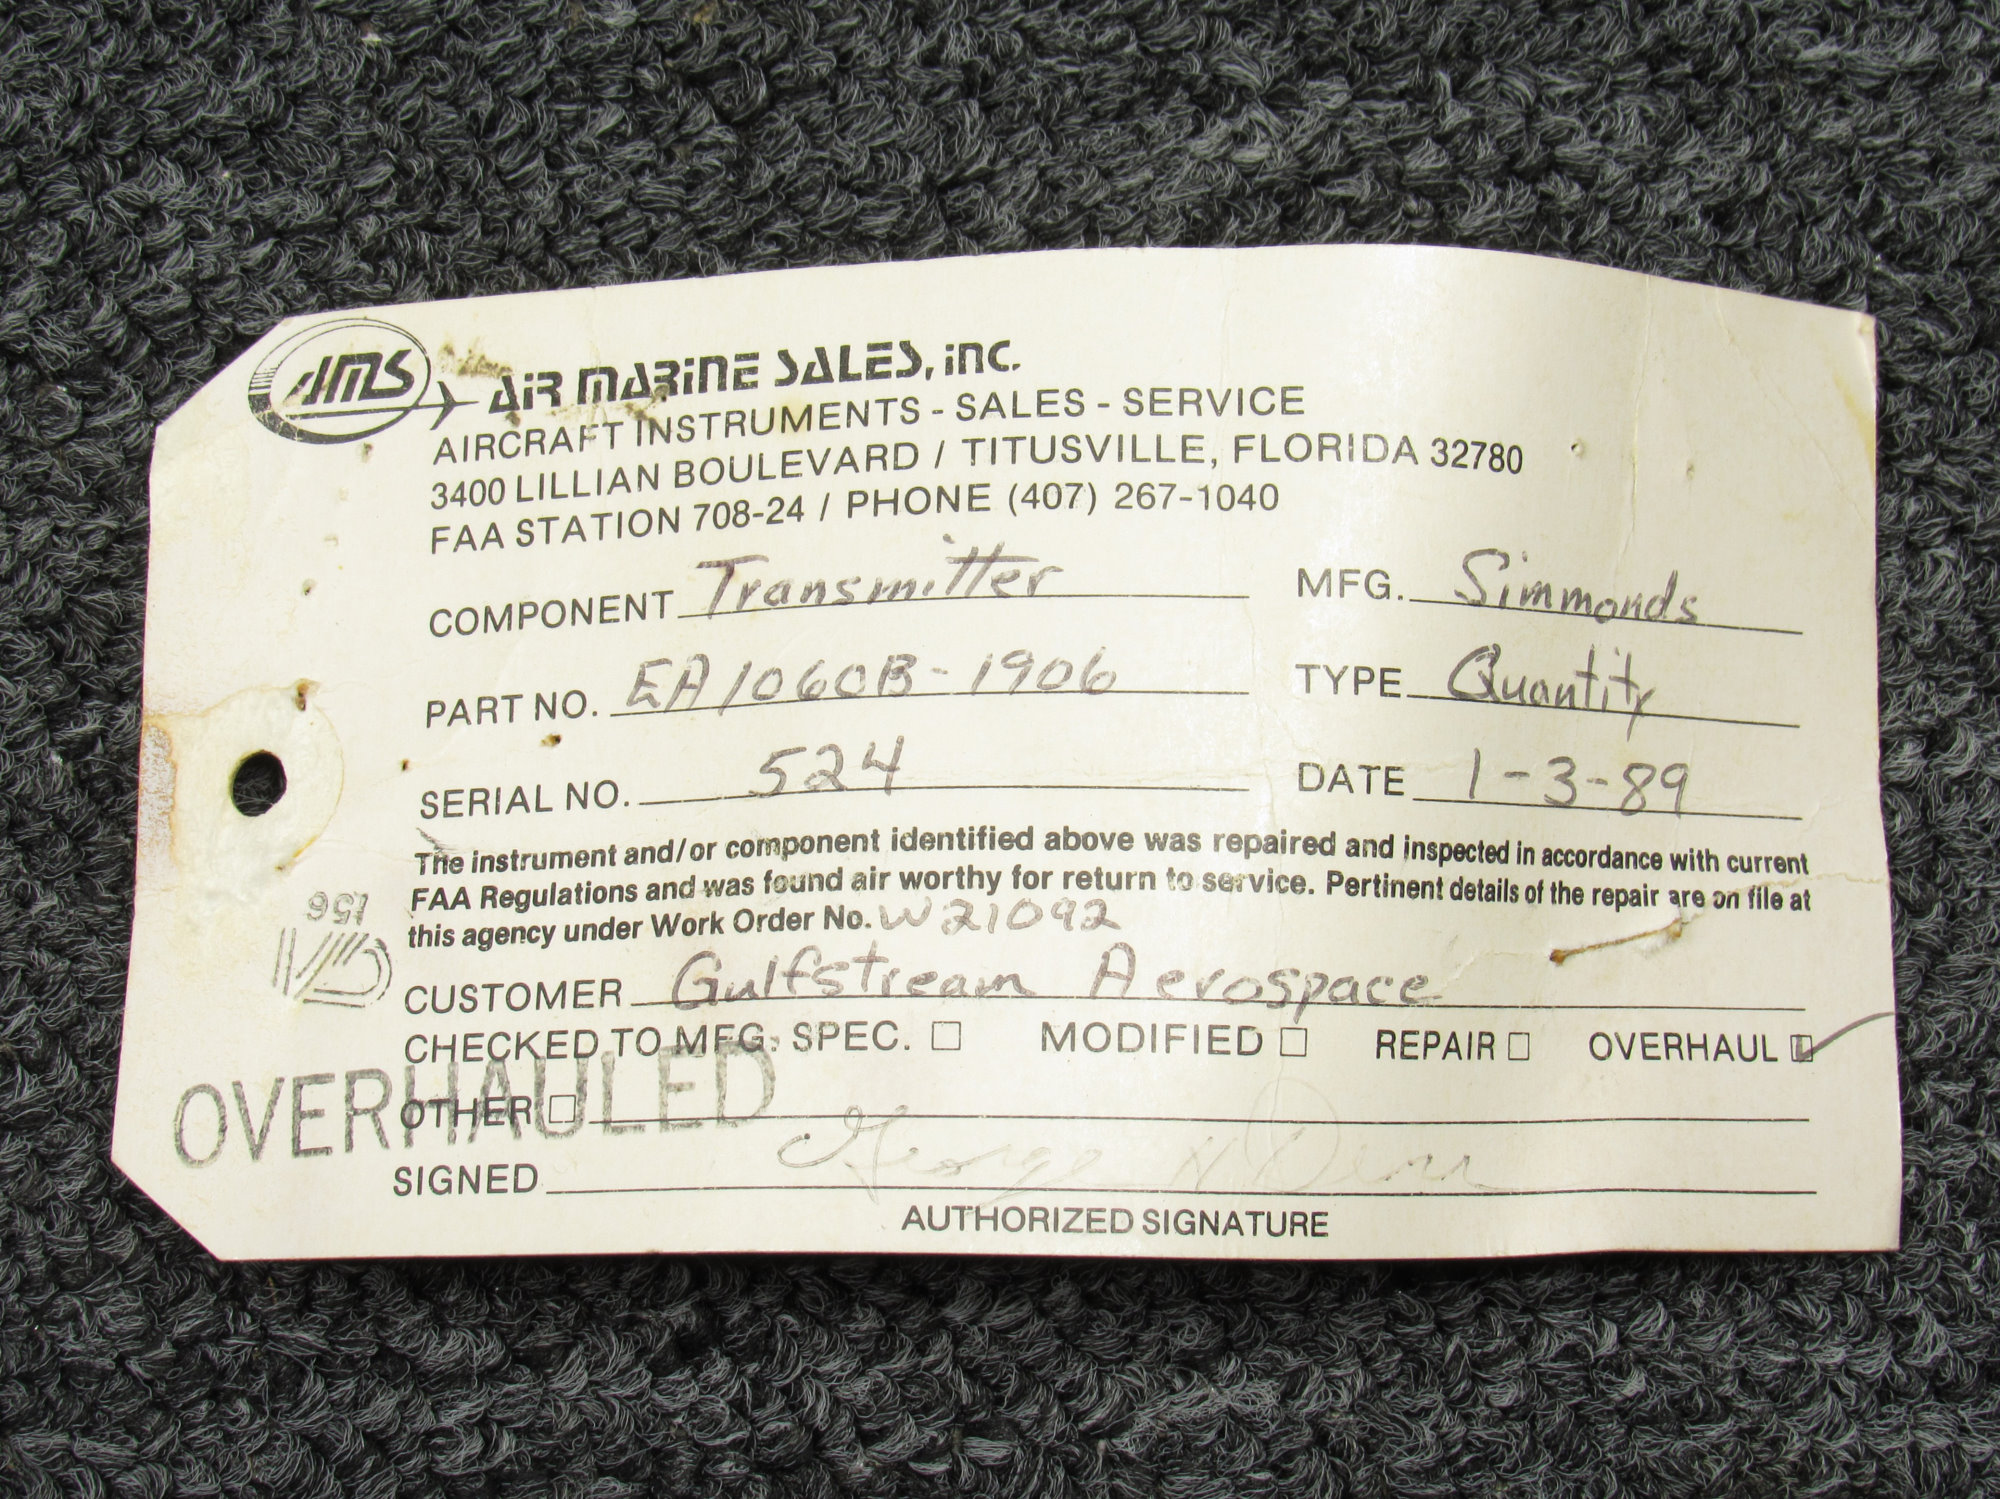 AMS AIR MARINE SALES, INC.
AIRCRAFT INSTRUMENTS - SALES - SERVICE
3400 LILLIAN BOULEVARD / TITUSVILLE, FLORIDA 32780
FAA STATION 708-24 / PHONE (407) 267-1040
COMPONENT Transmitter MFG. Simmonds
PART NO. EA1060B-1906 TYPE Quantity
SERIAL NO. 524 DATE 1-3-89
The instrument and/or component identified above was repaired and inspected in accordance with current
FAA Regulations and was found air worthy for return to service. Pertinent details of the repair are on file at
this agency under Work Order No. W21092
156
CUSTOMER Gulfstream Aerospace
CHECKED TO MFG. SPEC. MODIFIED REPAIR OVERHAUL
OVERHAULED
OTHER
SIGNED George
AUTHORIZED SIGNATURE